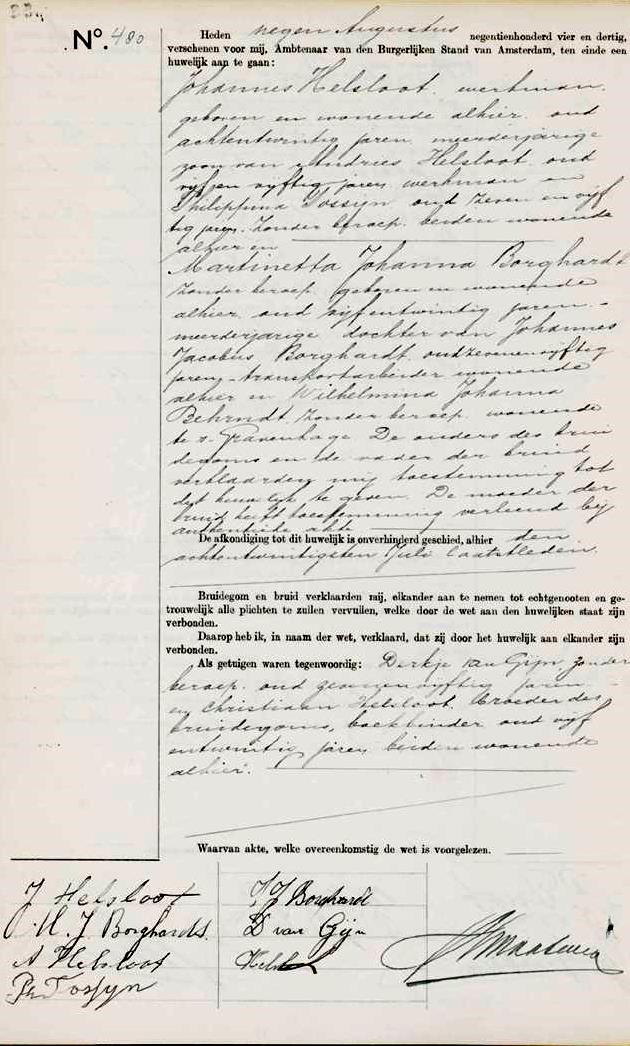 Nº. 480
Heden negen Augustus negentienhonderd vier en dertig,
verschenen voor mij, Ambtenaar van den Burgerlijken Stand van Amsterdam, ten einde een
huwelijk aan te gaan:
Johannes Helsloot, werkman,
geboren en wonende alhier, oud
achtentwintig jaren, meerderjarige
zoon van Andries Helsloot, oud
vijf en vijftig jaren, werkman en
Philippina Tossyn, oud zeven en vijf
tig jaren, zonder beroep, beiden wonende
alhier en
Martinetta Johanna Borghardt
zonder beroep, geboren en wonende
alhier, oud vijfentwintig jaren,
meerderjarige dochter van Johannes
Jacobus Borghardt, oud zevenenvijftig
jaren, transportarbeider wonende
alhier en Wilhelmina Johanna
Behrndt, zonder beroep, wonende
te 's-Gravenhage De ouders des brui
degoms en de vader der bruid
verklaarden mij toestemming tot
dit huwelijk te geven. De moeder der
bruid heeft toestemming verleend bij
authentieke akte
De afkondiging tot dit huwelijk is onverhinderd geschied, alhier den
achtentwintigsten Juli laatstleden.
Bruidegom en bruid verklaarden mij, elkander aan te nemen tot echtgenooten en ge-
trouwelijk alle plichten te zullen vervullen, welke door de wet aan den huwelijken staat zijn
verbonden.
Daarop heb ik, in naam der wet, verklaard, dat zij door het huwelijk aan elkander zijn
verbonden.
Als getuigen waren tegenwoordig: Derkje van Gijn, zonder
beroep, oud jaren
en Christiaan Helsloot, broeder des
bruidegoms, boekbinder oud vijf
entwintig jaren, beiden wonende
alhier.
Waarvan akte, welke overeenkomstig de wet is voorgelezen.
J Helsloot
J J Borghardt
M. J Borghardt.
D van Gijn
A Helsloot
Ph Tossyn